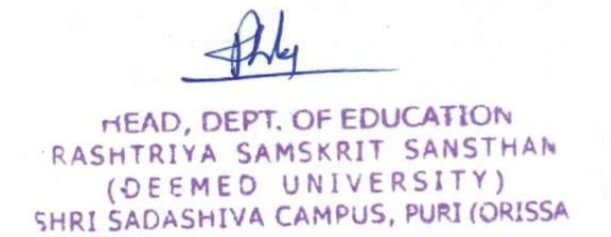 HEAD, DEPT. OF EDUCATION
RASHTRIYA SAMSKRIT SANSTHAN
(DEEMED UNIVERSITY)
SHRI SADASHIVA CAMPUS, PURI (ORISSA